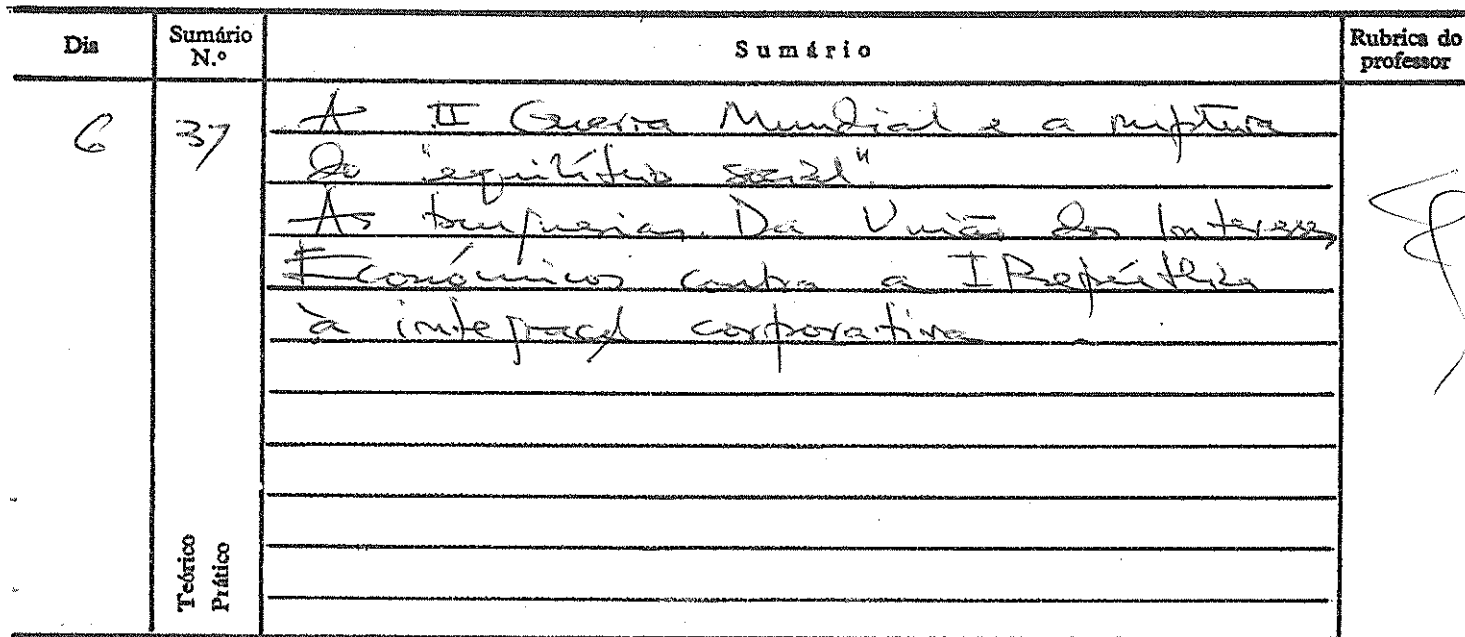 Dia
Sumário N.º
Sumário
Rubrica do professor
6
37
A II Guerra Mundial e a ruptura
do "equilíbrio social"
As burguesias. Da União dos Interesses
Económicos contra a I República
à integração corporativa.
Teórico
Prático